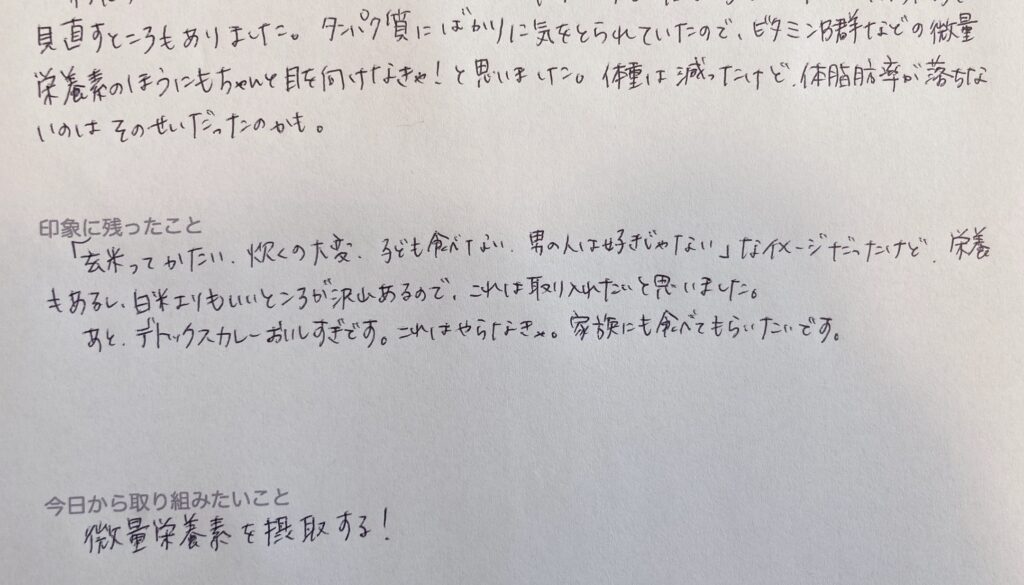 見直すところもありました。タンパク質にばかりに気をとられていたので、ビタミンB群などの微量
栄養素のほうにもちゃんと目を向けなきゃ!と思いました。体重は減ったけど、体脂肪率が落ちな
いのはそのせいだったのかも。
印象に残ったこと
「玄米ってかたい、炊くの大変、子ども食べてない、男の人は好きじゃない」なイメージだったけど、栄養
もあるし、白米よりもいいところが沢山あるので、これは取り入れたいと思いました。
あと、デトックスカレーおいしすぎです。これはやらなきゃ。家族にも食べてもらいたいです。
今日から取り組みたいこと
微量栄養素を摂取する!